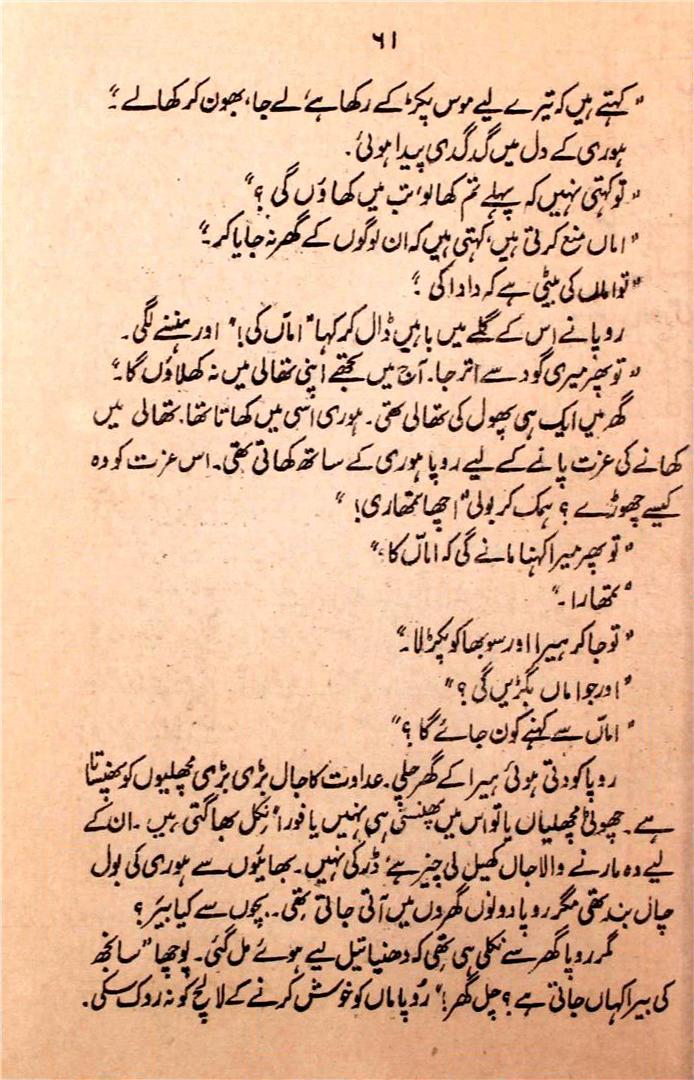 ۶۱
"کہتے ہیں کہ تیرے لیے موس پکڑ کے رکھا ہے، لے جا، بھون کر کھالے۔"
ہوری کے دل میں گدگدی پیدا ہوئی۔
"تو کہتی نہیں کہ پہلے تم کھالو، تب میں کھاؤں گی؟"
"اماں منع کرتی ہیں، کہتی ہیں کہ ان لوگوں کے گھر نہ جایا کر۔"
"تو اماں کی بیٹی ہے کہ دادا کی؟"
روپا نے اس کے گلے میں باہیں ڈال کر کہا "اماّں کی!" اور ہنسنے لگی۔
"تو پھر میری گود سے اتر جا۔ آج میں تجھے اپنی تھالی میں نہ کھلاؤں گا۔"
گھر میں ایک ہی پھول کی تھالی تھی۔ ہوری اسی میں کھاتا تھا۔ تھالی میں
کھانے کی عزت پانے کے لیے روپا ہوری کے ساتھ کھاتی تھی۔ اس عزت کو وہ
کیسے چھوڑے؟ ہمک کر بولی "اچھا تمھاری!"
"تو پھر میرا کہنا مانے گی کہ اماّں کا۔"
"تمھارا۔"
"تو جا کر ہیرا اور سوبھا کو پکڑ لا۔"
"اور جو اماں بگڑیں گی؟"
"اماّں سے کہنے کون جائے گا؟"
روپا کودتی ہوئی ہیرا کے گھر چلی۔ عداوت کا جال بڑی بڑی مچھلیوں کو پھنساتا
ہے۔ چھوٹی مچھلیاں یا تو اس میں پھنستی ہی نہیں یا فوراً نکل بھاگتی ہیں۔ ان کے
لیے وہ مارنے والا جال کھیل کی چیز ہے، ڈر کی نہیں۔ بھائیوں سے ہوری کی بول
چال بند تھی مگر روپا دونوں گھروں میں آتی جاتی تھی۔ بچوں سے کیا بیَر؟
گمر روپا گھر سے نکلی ہی تھی کہ دھنیا تیل لیے ہوئے مل گئی۔ پوچھا "سانجھ
کی بیرا کہاں جاتی ہے؟ چل گھر!" رُوپا ماں کو خوش کرنے کے لالچ کو نہ روک سکی۔